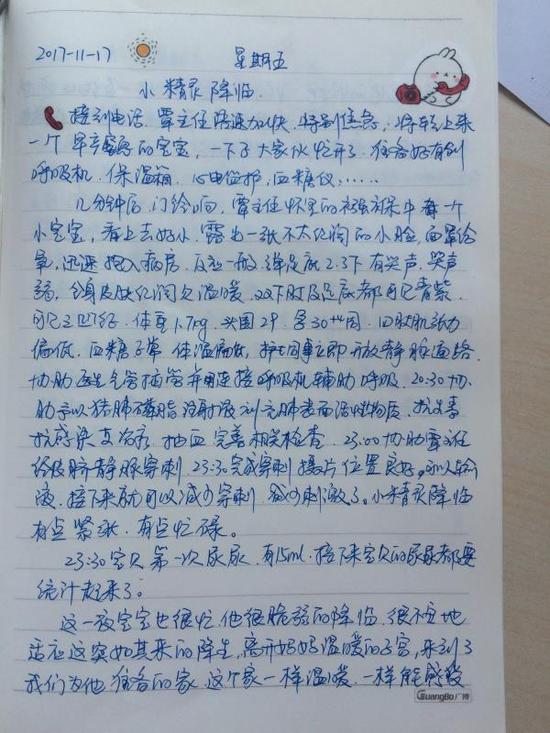 2017-11-17 星期五
小精灵降临
接到电话,覃主任语速加快,特别焦急,将转上来
一个早产的宝宝,一下子大家伙忙开了,准备好有创
呼吸机、保温箱、心电监护、血糖仪……
几分钟后,门铃响,覃主任怀里的襁褓中有一个
小宝宝,看上去好小,露出一张不太红润的小脸,面罩给
氧,迅速抱入病房,反应一般,弹足底2.3下有哭声,哭声
弱,全身皮肤红润欠温暖,双下肢及足底都可见青紫,
可见三凹征,体重1.7kg,头围29,孕30周,四肢肌张力
偏低,血糖正常,体温偏低,护士同事立即开放静脉通路,
协助医生气管插管并连接呼吸机辅助呼吸。20:30协
助予以猪肺磷脂注射液补充肺表面活性物质,抗炎
抗感染支治疗,抽血完善相关检查。23:00协助覃主任
经脐静脉穿刺,23:30完成穿刺,摄片位置良好,可以输
液,接下来就可以减少穿刺,减少刺激了。小精灵降临
有点紧张,有点忙碌。
23:30宝贝第一次尿尿,有15ml,接下来宝贝的尿尿都要
统计起来了。
这一夜宝宝也很忙,他很脆弱的降临,很不安地
适应这突如其来的降生,离开妈妈温暖的子宫,来到了
我们为他准备的家,这个家一样温暖,一样能感受
GuangBo广博